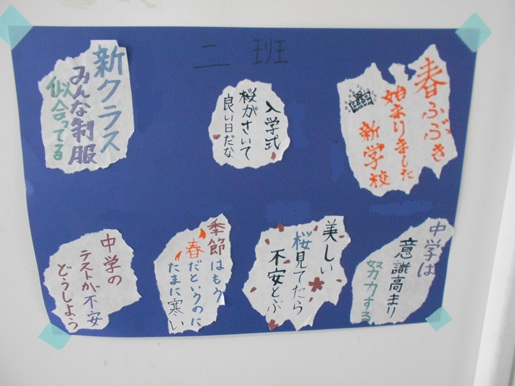 二班
春ふぶき
始まりました
新学校
入学式
桜がさいて
良い日だな
新クラス
みんな制服
似合ってる
中学は
意識高まり
努力する
美しい
桜見てたら
不安とぶ
季節はもう
春だというのに
たまに寒い
中学の
テストが、不安
どうしよう